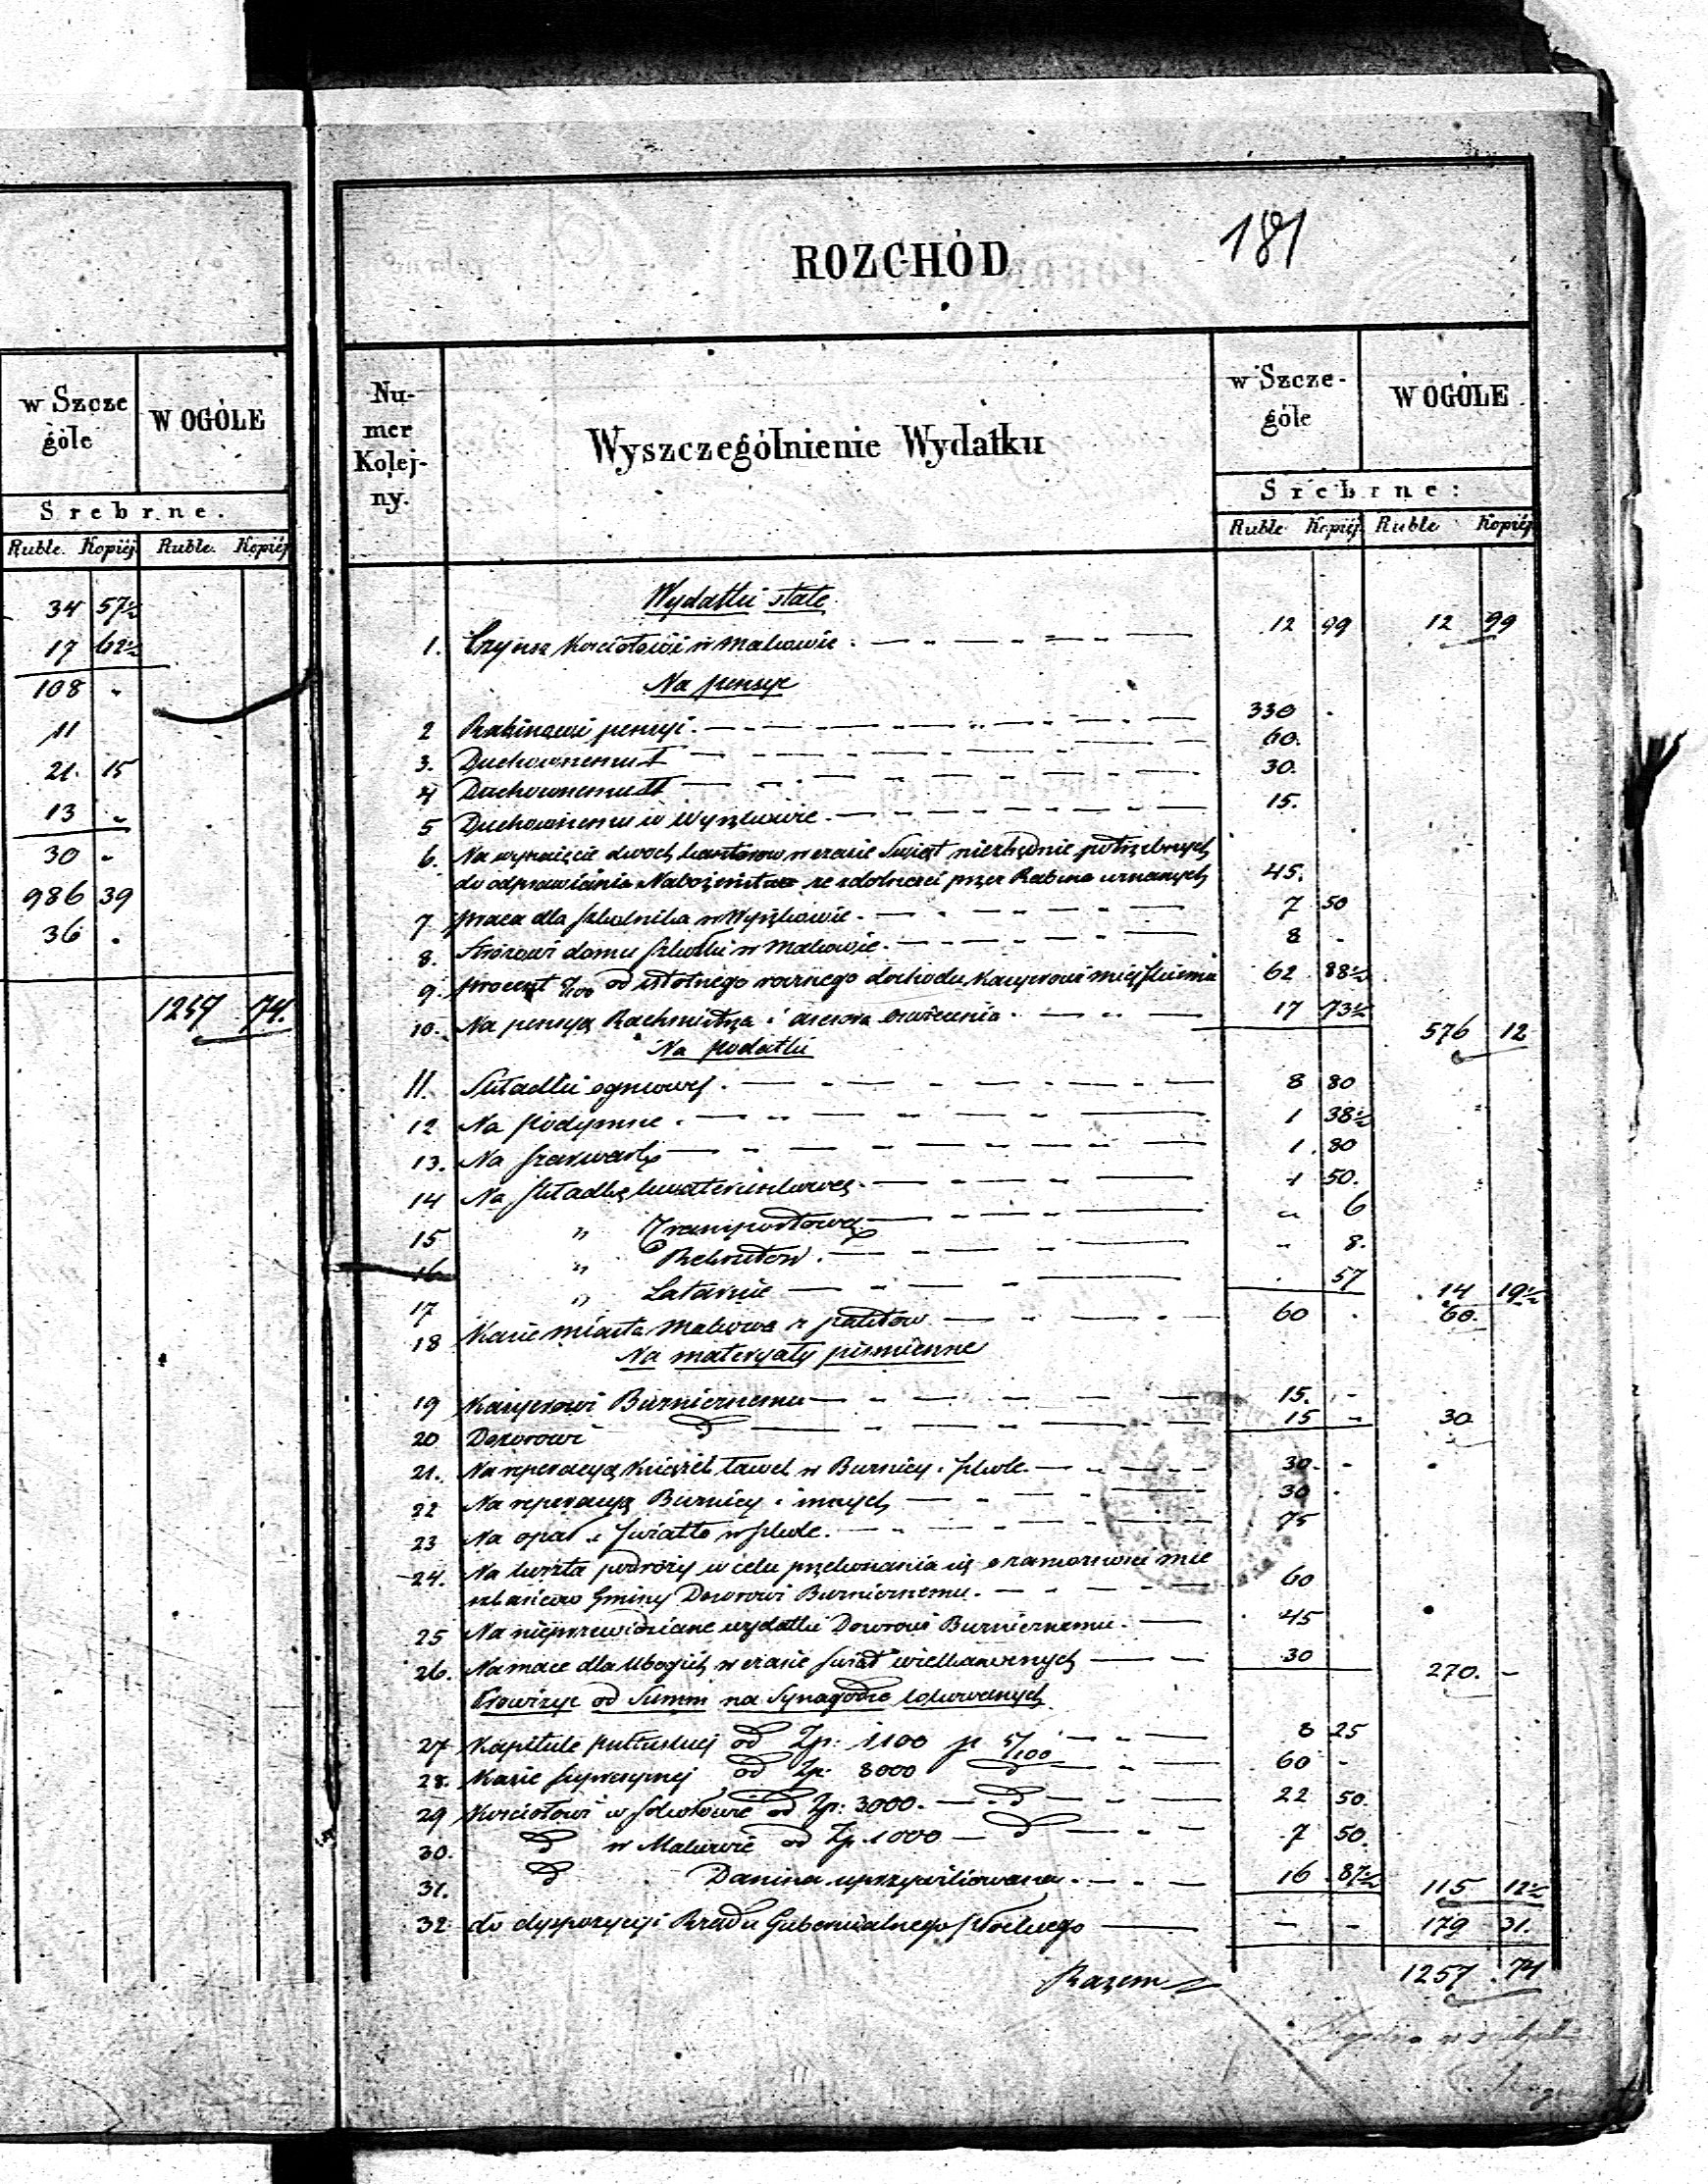 w Szcze
góle
W OGÓLE
Srebrne.
Ruble. Kopiéj Ruble. Kopiéj
34 57½
17 62½
108 "
11
21. 15
13 "
30 "
986 39
36 .
1257 74.
ROZCHÓD
181
Nu-
mer
Kolej-
ny.
Wyszczególnienie Wydatku
w Szcze-
góle
W OGÓLE
Srebrne:
Ruble Kopiéj Ruble Kopiéj
Wydatki stałe
1. Czynsz Kościołowi w Makowie 12 99 12 99
Na pensye
2 Rabinowi pensyi 330 .
3. Duchownemu I 60.
4 Duchownemu II 30.
5 Duchownemu w Wyszkowie 15.
6. Na wynaięcie dwoch kantorow w czasie Swiąt niezbędnie potrzebnych
do odprawiania Nabożeństwa ze zdolności przez Rabina uznanych 45.
7 płaca dla szkolnika w Wyszkowie 7 50
8. Strożowi domu szkolki w Makowie 8 -
9. procent 5/100 od istotnego rocznego dochodu Kasyerowi miejskiemu 62 88½
10. Na pensyą Rachmistrza i 17 73½ 576 12
Na podatki
11. Składki ogniowej 8 80
12 Na podymne 1 38½
13. Na szarwark 1 80
14 Na składkę kwaterunkową 1 50.
15 " Transportową " 6
16 " Rekrutow " 8.
17 " Latarnie . 57 14 19½
18 Kasie miasta Makowa z 60 . 60.
Na materyały piśmienne
19 Kasyerowi Bużniczemu 15. -
20 Dozorowi d 15 - 30
21. Na reperacyą Książek ławek w Bużnicy i szkole 30. -
22 Na reperacyą Bużnicy i innych 30 .
23 Na opał i światło w szkole. 75
24. Na koszta podroży w celu przekonania się o zamożności mie
szkańcow Gminy Dozorowi Bużniczemu. 60
25 Na nieprzewidziane wydatki Dozorowi Bużniczemu. 45
26. Na mace dla Ubogich w czasie świąt wielkanocnych 30 270. -
Prowizye od Summ na Synagodze lokowanych
27 Kapitule pułtuskiej od Zp: 1100 p 5/100 8 25
28. Kasie supresyjnej od Zp: 8000 d 60 -
29 Kościołowi w od Zp: 3000. d 22 50.
30. d w Makowie od Zp. 1000 d 7 50.
31. d Danina uprzywiliowana 16 87½ 115 12½
32 do dyspozycyi Rządu Gubernialnego Płockiego - - 179 31.
Razem 1257 . 74